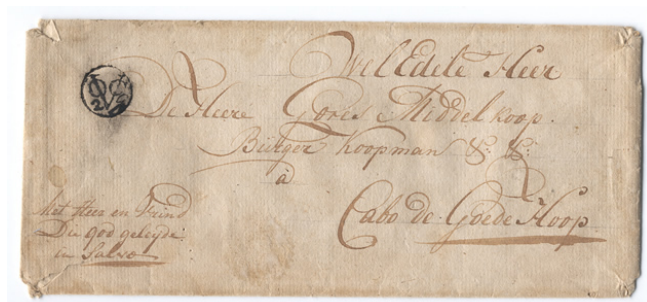 Wel Edele Heer
De Heere Gores Middelkoop.
Burger Koopman &: &:
à
Cabo de Goede Hoop
het Heer en Vrind
Die god geleyde
in Salvo